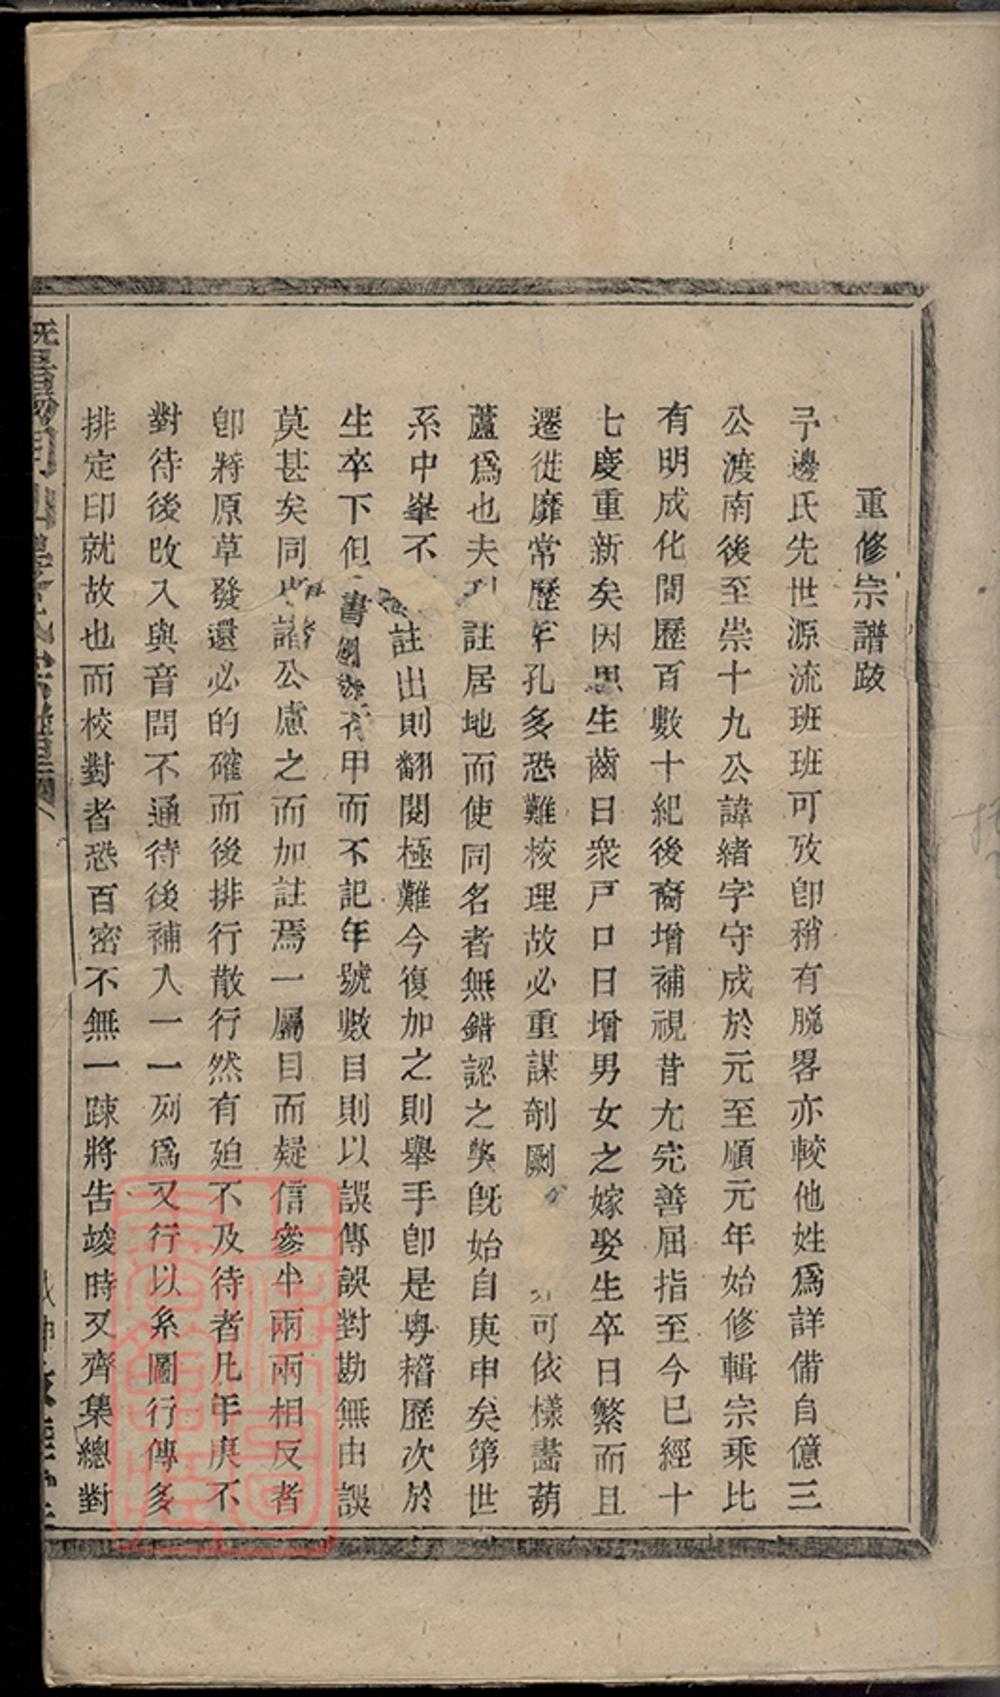 重修宗譜跋
予邊氏先世源流班班可攷卽稍有脫畧亦較他姓爲詳備自億三
公渡南後至崇十九公諱緒字守成於元至順元年始修輯宗乘比
有明成化間歷百數十紀後裔增補視昔尤完善屈指至今已經十
七慶重新矣因思生齒日衆戸口日增男女之嫁娶生卒日繁而且
遷徙靡常歷年孔多恐難校理故必重謀剞劂可依樣畫葫
蘆爲也夫註居地而使同名者無錯認之獘旣始自庚申矣第世
系中峯不註出則翻閱極難今復加之則舉手卽是粤稽歷次於
生卒下但書甲而不記年號數目則以誤傳誤對勘無由誤
莫甚矣同諸公慮之而加註焉一屬目而疑信參半兩兩相反者
卽將原草發還必的確而後排行散行然有廹不及待者凡年庚不
對待後改入與音問不通待後補入一一列爲又行以系圖行傳多
排定印就故也而校對者恐百密不無一踈將告竣時又齊集總對